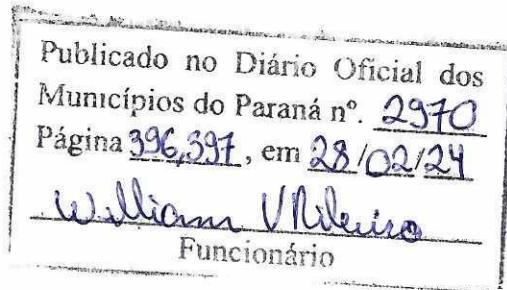 Publicado no Diário Oficial dos
Municípios do Paraná nº. 2970
Página 396,397, em 28/02/24
William V Ribeiro
Funcionário